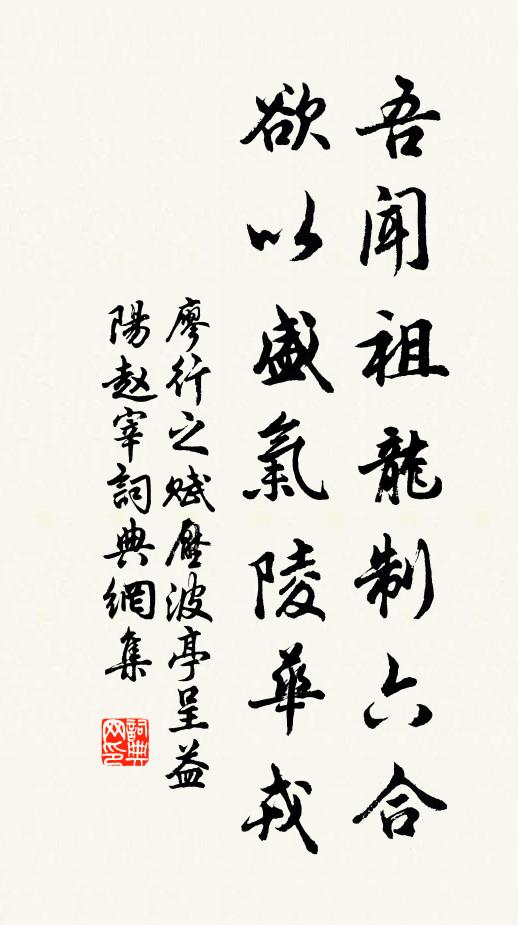 吾聞祖龍制六合
欲以盛氣陵華戎
廖行之賦壓波亭呈益
陽趙宰詞典網集
詞典網印